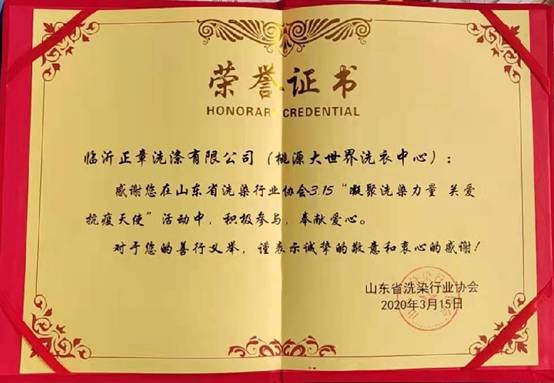 荣誉证书
HONORARY CREDENTIAL
临沂正章洗涤有限公司（桃源大世界洗衣中心）：
感谢您在山东省洗染行业协会3.15“凝聚洗染力量 关爱
抗疫天使”活动中，积极参与，奉献爱心。
对于您的善行义举，谨表示诚挚的敬意和衷心的感谢！
山东省洗染行业协会
2020年3月15日